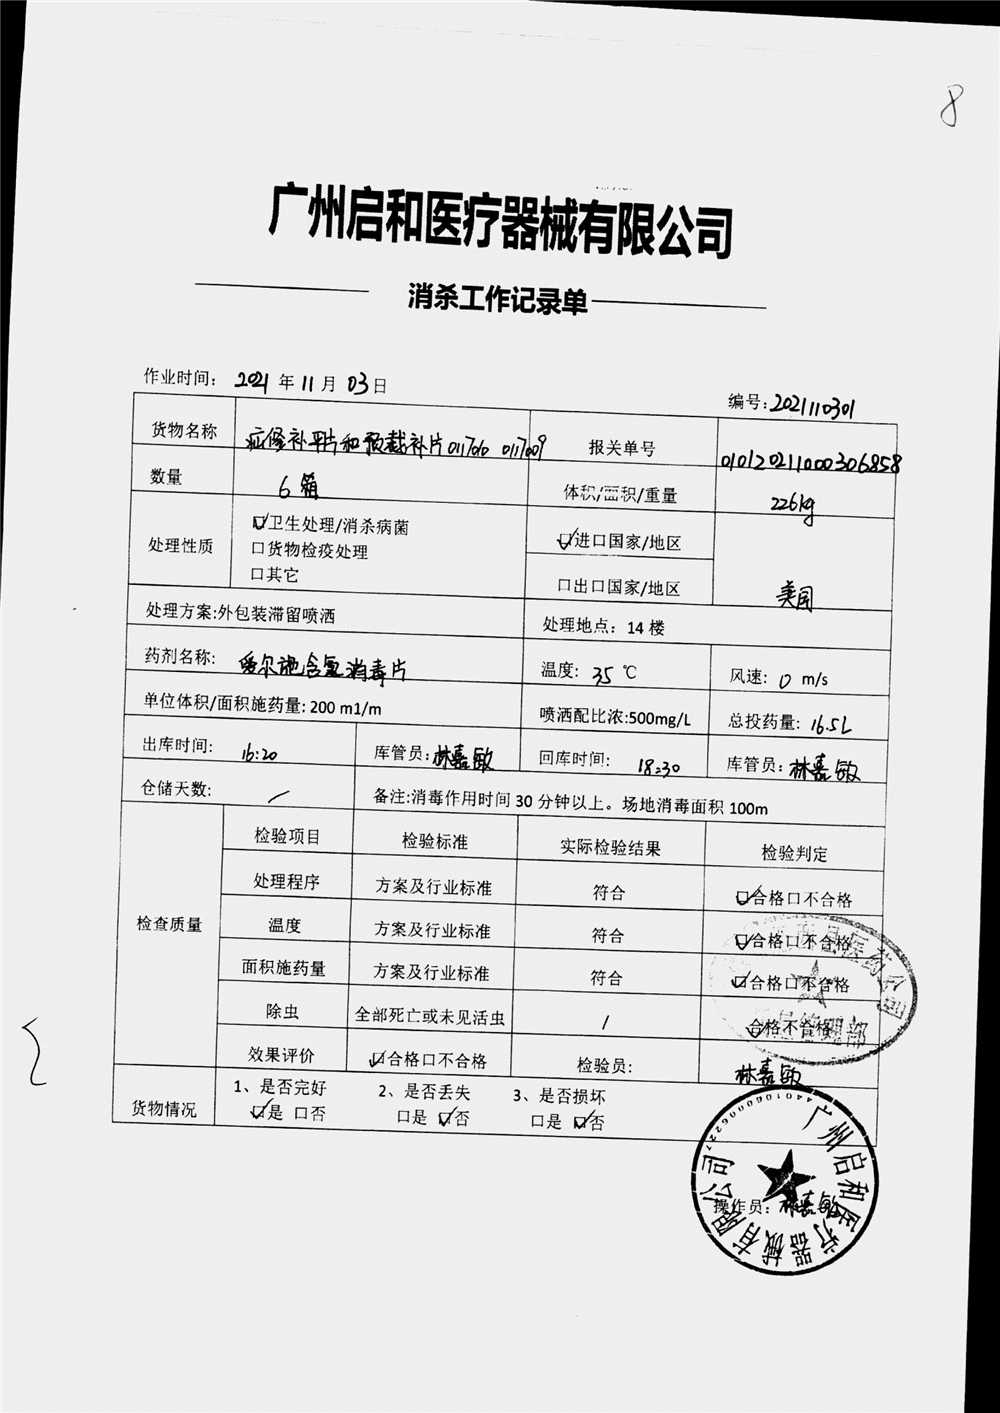 8
广州启和医疗器械有限公司
消杀工作记录单
作业时间: 2021 年 11 月 03 日
编号: 2021110301
货物名称 疝修补平片和预裁补片 0117016 0117009 报关单号 010120211000306858
数量 6箱 体积/面积/重量 226kg
处理性质 ☑卫生处理/消杀病菌 ☑进口国家/地区 美国
口货物检疫处理
口其它 口出口国家/地区
处理方案:外包装滞留喷洒 处理地点: 14 楼
药剂名称: 爱尔施含氯消毒片 温度: 35 ℃ 风速: 0 m/s
单位体积/面积施药量: 200 m1/m 喷洒配比浓:500mg/L 总投药量: 16.5L
出库时间: 16:20 库管员: 林嘉敏 回库时间: 18:30 库管员: 林嘉敏
仓储天数: / 备注:消毒作用时间 30 分钟以上。场地消毒面积 100m
检查质量 检验项目 检验标准 实际检验结果 检验判定
处理程序 方案及行业标准 符合 ☑合格口不合格
温度 方案及行业标准 符合 ☑合格口不合格
面积施药量 方案及行业标准 符合 ☑合格口不合格
除虫 全部死亡或未见活虫 / 合格不合格
效果评价 ☑合格口不合格 检验员: 林嘉敏
货物情况 1、是否完好 2、是否丢失 3、是否损坏
☑是 口否 口是 ☑否 口是 ☑否
操作员: 林嘉敏
广州启和医疗器械有限公司